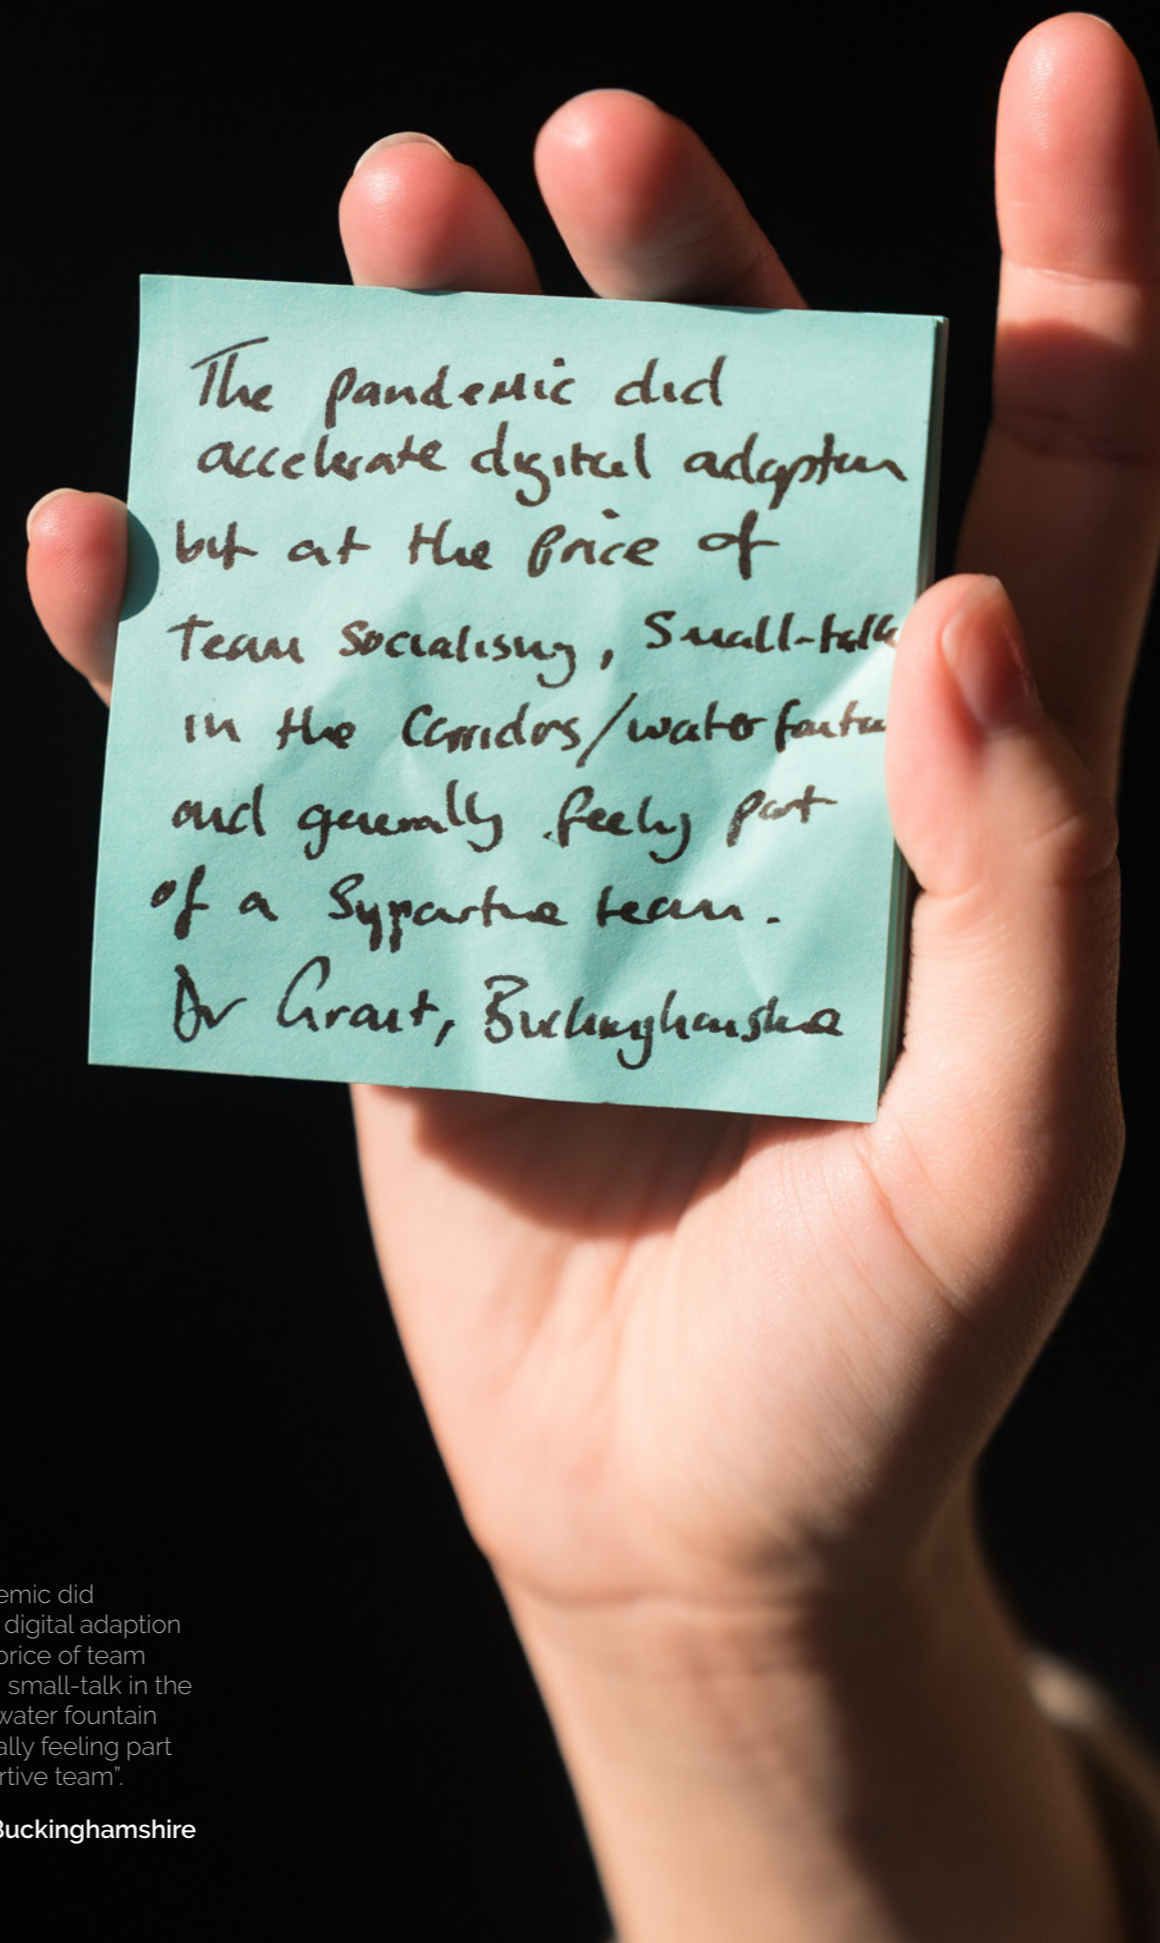 The pandemic did
accelerate digital adaption
but at the price of
team socialising, small-talk
in the corridors/water fountain
and generally feeling part
of a supportive team.
Dr Grant, Buckinghamshire
emic did
digital adaption
price of team
small-talk in the
water fountain
ally feeling part
rtive team".
Buckinghamshire